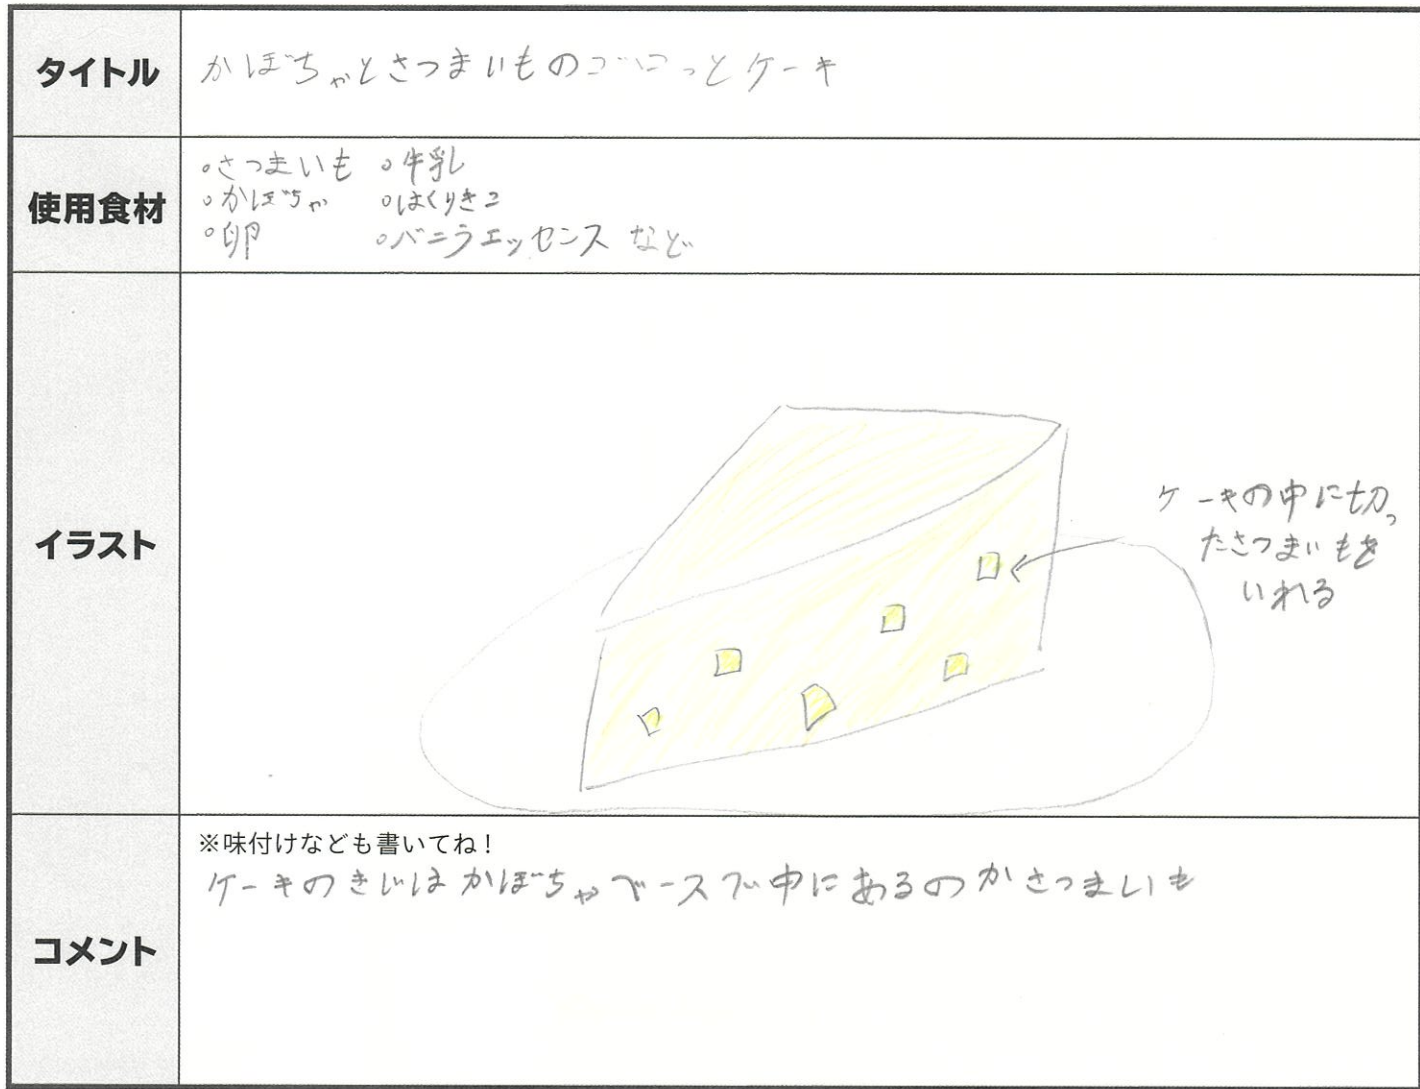 タイトル
かぼちゃとさつまいものごろごろっとケーキ
使用食材
○さつまいも ○牛乳
○かぼちゃ ○はくりきこ
○卵 ○バニラエッセンス など
イラスト
ケーキの中に切っ
たさつまいもを
いれる
コメント
※味付けなども書いてね!
ケーキのきじはかぼちゃベースで中にあるのがさつまいも